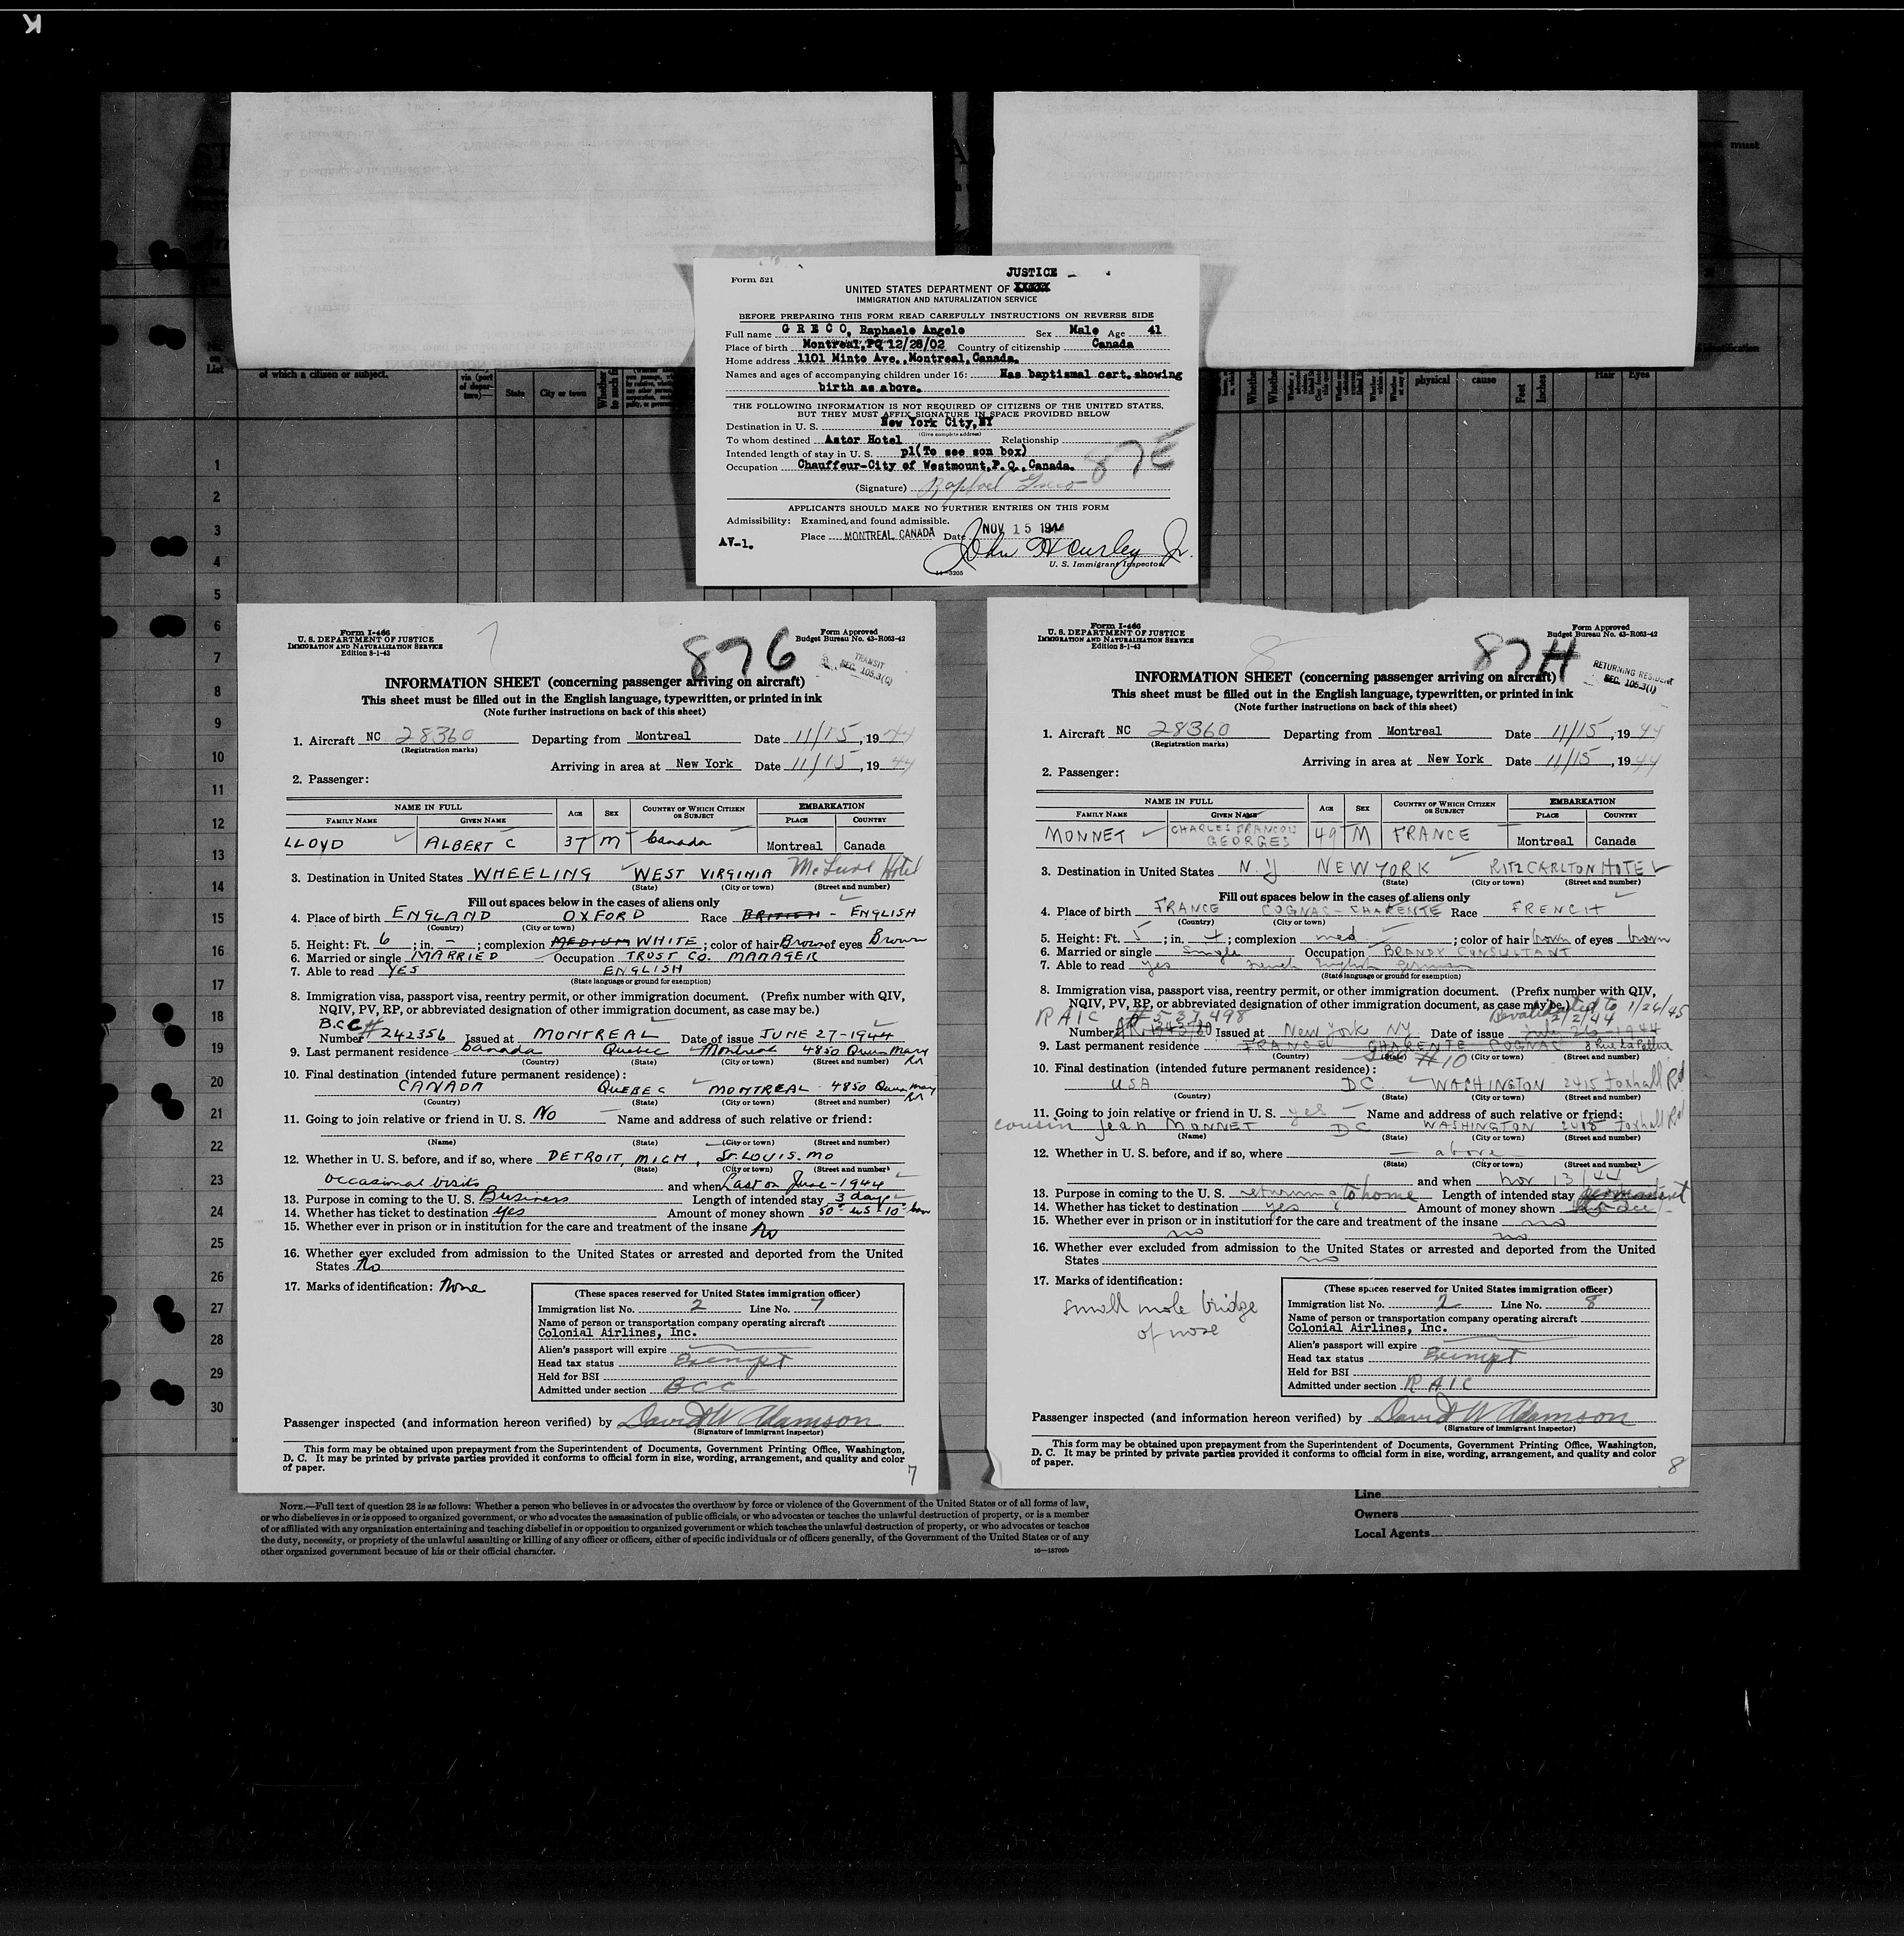 Form 521
JUSTICE
UNITED STATES DEPARTMENT OF XXXXX
IMMIGRATION AND NATURALIZATION SERVICE
BEFORE PREPARING THIS FORM READ CAREFULLY INSTRUCTIONS ON REVERSE SIDE
Full name G R E C O, Raphaele Angelo Sex Male Age 41
Place of birth Montreal,PQ 12/28/02 Country of citizenship Canada
Home address 1101 Minto Ave., Montreal, Canada.
Names and ages of accompanying children under 16: Has baptismal cert. showing
birth as above.
THE FOLLOWING INFORMATION IS NOT REQUIRED OF CITIZENS OF THE UNITED STATES,
BUT THEY MUST AFFIX SIGNATURE IN SPACE PROVIDED BELOW
Destination in U. S. New York City,NY
(Give complete address)
To whom destined Astor Hotel Relationship
Intended length of stay in U. S. p1(To see son box)
Occupation Chauffeur-City of Westmount,P.Q., Canada.
87E
(Signature) Raphael Greco
APPLICANTS SHOULD MAKE NO FURTHER ENTRIES ON THIS FORM
Admissibility: Examined and found admissible.
AV-1. Place MONTREAL, CANADA Date NOV 15 1944
John H Curley Jr.
U. S. Immigrant Inspector.
16—3205
of which a citizen or subject.
via (port of departure)—
State
City or town
physical
cause
Feet
Inches
Hair
Eyes
List
1
2
3
4
5
6
7
8
9
10
11
12
13
14
15
16
17
18
19
20
21
22
23
24
25
26
27
28
29
30
Form I-466
U. S. DEPARTMENT OF JUSTICE
IMMIGRATION AND NATURALIZATION SERVICE
Edition 8-1-43
7
87G
Form Approved
Budget Bureau No. 43-R063-42
TRANSIT
SEC. 105.3(G)
INFORMATION SHEET (concerning passenger arriving on aircraft)
This sheet must be filled out in the English language, typewritten, or printed in ink
(Note further instructions on back of this sheet)
1. Aircraft NC 28360 Departing from Montreal Date 11/15, 1944
(Registration marks)
Arriving in area at New York Date 11/15, 1944
2. Passenger:
NAME IN FULL AGE SEX COUNTRY OF WHICH CITIZEN OR SUBJECT EMBARKATION
FAMILY NAME GIVEN NAME PLACE COUNTRY
LLOYD ALBERT C 37 M Canada Montreal Canada
3. Destination in United States WHEELING WEST VIRGINIA McLure Hotel
(State) (City or town) (Street and number)
Fill out spaces below in the cases of aliens only
4. Place of birth ENGLAND OXFORD Race BRITISH - ENGLISH
(Country) (City or town)
5. Height: Ft. 6; in. -; complexion MEDIUM WHITE; color of hair Brown of eyes Brown
6. Married or single MARRIED Occupation TRUST CO. MANAGER
7. Able to read YES ENGLISH
(State language or ground for exemption)
8. Immigration visa, passport visa, reentry permit, or other immigration document. (Prefix number with QIV,
NQIV, PV, RP, or abbreviated designation of other immigration document, as case may be.)
B.C.C #
Number 242356 Issued at MONTREAL Date of issue JUNE 27-1944
9. Last permanent residence Canada Quebec Montreal 4850 Queen Mary Rd
(Country) (State) (City or town) (Street and number)
10. Final destination (intended future permanent residence):
CANADA QUEBEC MONTREAL 4850 Queen Mary Rd
(Country) (State) (City or town) (Street and number)
11. Going to join relative or friend in U. S. No Name and address of such relative or friend:
(Name) (State) (City or town) (Street and number)
12. Whether in U. S. before, and if so, where DETROIT, MICH, St. LOUIS. MO
(State) (City or town) (Street and number)
occasional visits and when Last on June-1944
13. Purpose in coming to the U. S. Business Length of intended stay 3 days
14. Whether has ticket to destination yes Amount of money shown 50 US 10 can
15. Whether ever in prison or in institution for the care and treatment of the insane No
16. Whether ever excluded from admission to the United States or arrested and deported from the United
States No
17. Marks of identification: None
(These spaces reserved for United States immigration officer)
Immigration list No. 2 Line No. 7
Name of person or transportation company operating aircraft
Colonial Airlines, Inc.
Alien's passport will expire
Head tax status Exempt
Held for BSI
Admitted under section BCC
Passenger inspected (and information hereon verified) by David W Adamson
(Signature of immigrant inspector)
This form may be obtained upon prepayment from the Superintendent of Documents, Government Printing Office, Washington,
D. C. It may be printed by private parties provided it conforms to official form in size, wording, arrangement, and quality and color
of paper.
7
Form I-466
U. S. DEPARTMENT OF JUSTICE
IMMIGRATION AND NATURALIZATION SERVICE
Edition 8-1-43
8
87H
Form Approved
Budget Bureau No. 43-R063-42
RETURNING RESIDENT
SEC. 105.3(1)
INFORMATION SHEET (concerning passenger arriving on aircraft)
This sheet must be filled out in the English language, typewritten, or printed in ink
(Note further instructions on back of this sheet)
1. Aircraft NC 28360 Departing from Montreal Date 11/15, 1944
(Registration marks)
Arriving in area at New York Date 11/15, 1944
2. Passenger:
NAME IN FULL AGE SEX COUNTRY OF WHICH CITIZEN OR SUBJECT EMBARKATION
FAMILY NAME GIVEN NAME PLACE COUNTRY
MONNET CHARLES FRANCOIS GEORGES 49 M FRANCE Montreal Canada
3. Destination in United States N.Y NEW YORK RITZ CARLTON HOTEL
(State) (City or town) (Street and number)
Fill out spaces below in the cases of aliens only
4. Place of birth FRANCE COGNAC - CHARENTE Race FRENCH
(Country) (City or town)
5. Height: Ft. 5; in. 4; complexion med; color of hair brown of eyes brown
6. Married or single Single Occupation BRANDY CONSULTANT
7. Able to read yes French English German
(State language or ground for exemption)
8. Immigration visa, passport visa, reentry permit, or other immigration document. (Prefix number with QIV,
NQIV, PV, RP, or abbreviated designation of other immigration document, as case may be.)
Revalidated to 1/26/45
RAIC # 537498
Number Issued at New York NY Date of issue
9. Last permanent residence FRANCE CHARENTE COGNAC
(Country) (State) (City or town) (Street and number)
See #10
10. Final destination (intended future permanent residence):
USA DC WASHINGTON 2415 Foxhall Rd
(Country) (State) (City or town) (Street and number)
11. Going to join relative or friend in U. S. yes Name and address of such relative or friend:
cousin Jean MONNET DC WASHINGTON 2415 Foxhall Rd
(Name) (State) (City or town) (Street and number)
12. Whether in U. S. before, and if so, where above
(State) (City or town) (Street and number)
and when Nov 13/44
13. Purpose in coming to the U. S. returning to home Length of intended stay permanent
14. Whether has ticket to destination yes Amount of money shown
15. Whether ever in prison or in institution for the care and treatment of the insane no
no no
16. Whether ever excluded from admission to the United States or arrested and deported from the United
States no
17. Marks of identification:
small mole bridge
of nose
(These spaces reserved for United States immigration officer)
Immigration list No. 2 Line No. 8
Name of person or transportation company operating aircraft
Colonial Airlines, Inc.
Alien's passport will expire
Head tax status Exempt
Held for BSI
Admitted under section RAIC
Passenger inspected (and information hereon verified) by David W Adamson
(Signature of immigrant inspector)
This form may be obtained upon prepayment from the Superintendent of Documents, Government Printing Office, Washington,
D. C. It may be printed by private parties provided it conforms to official form in size, wording, arrangement, and quality and color
of paper.
8
NOTE.—Full text of question 28 is as follows: Whether a person who believes in or advocates the overthrow by force or violence of the Government of the United States or of all forms of law,
or who disbelieves in or is opposed to organized government, or who advocates the assassination of public officials, or who advocates or teaches the unlawful destruction of property, or is a member
of or affiliated with any organization entertaining and teaching disbelief in or opposition to organized government or which teaches the unlawful destruction of property, or who advocates or teaches
the duty, necessity, or propriety of the unlawful assaulting or killing of any officer or officers, either of specific individuals or of officers generally, of the Government of the United States or of any
other organized government because of his or their official character.
16—15709b
Line
Owners
Local Agents